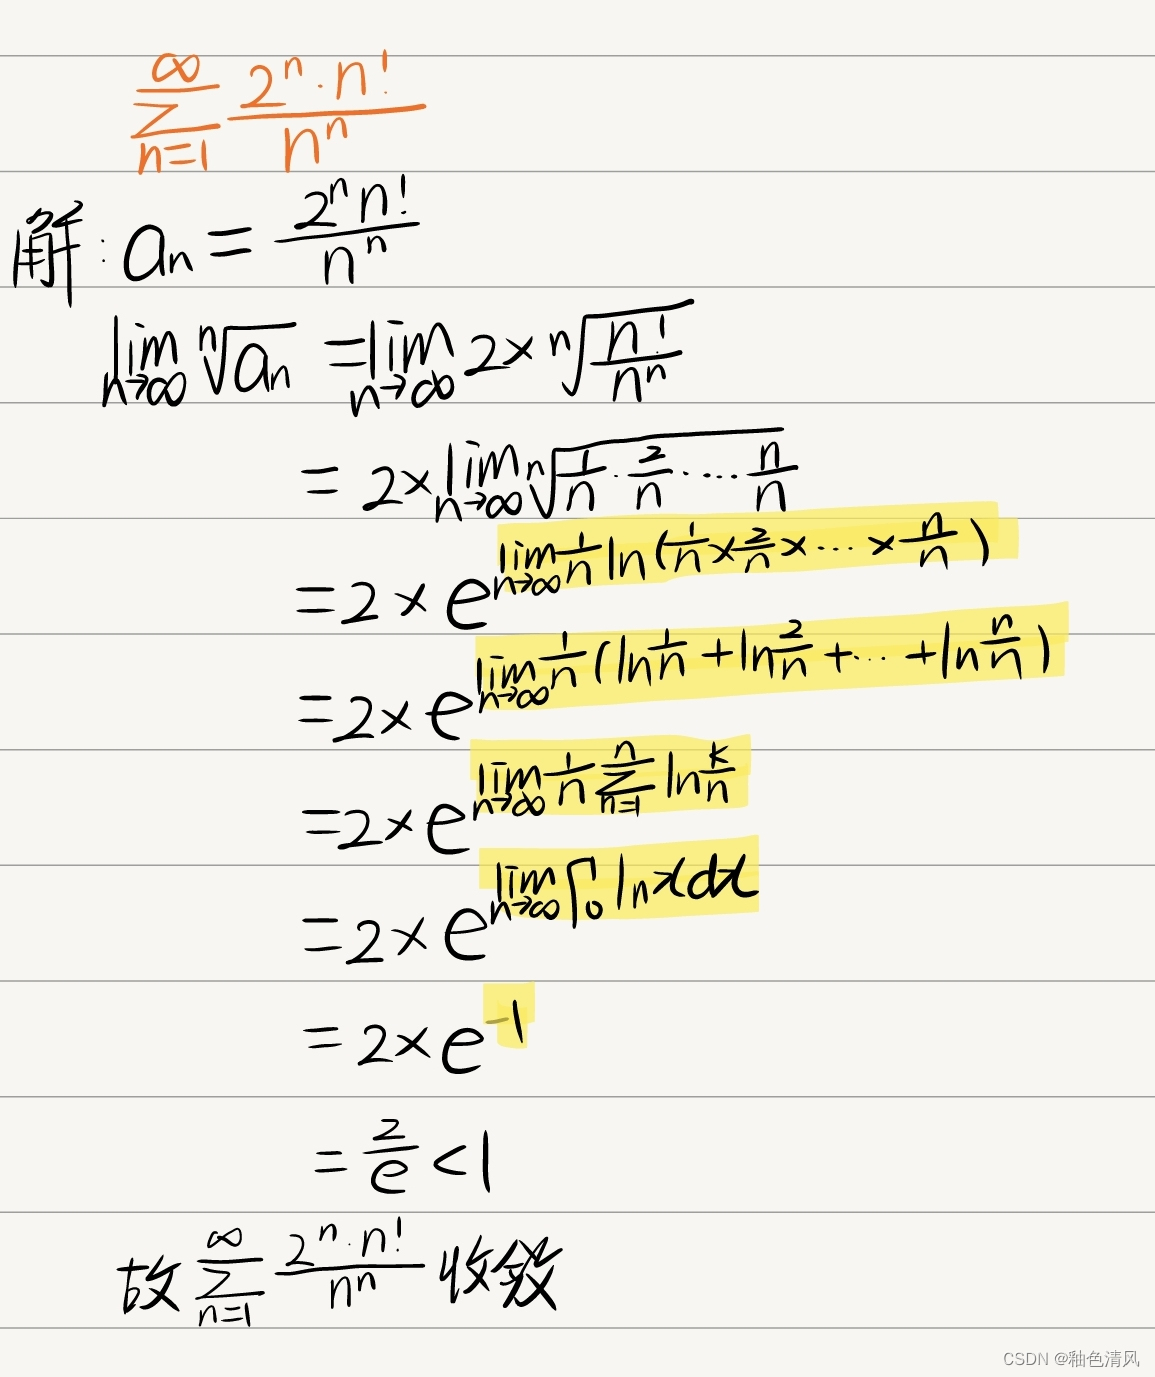 ∞∑n=1 2ⁿ·n!/nⁿ
解: aₙ = 2ⁿn!/nⁿ
lim n→∞ ⁿ√aₙ = lim n→∞ 2× ⁿ√(n!/nⁿ)
= 2× lim n→∞ ⁿ√(1/n · 2/n ···· n/n)
= 2 × e^(lim n→∞ 1/n ln(1/n × 2/n × ··· × n/n))
= 2 × e^(lim n→∞ 1/n (ln 1/n + ln 2/n + ··· + ln n/n))
= 2 × e^(lim n→∞ 1/n ∑ⁿn=1 ln k/n)
= 2 × e^(lim n→∞ ∫₀ ln x dx)
= 2 × e⁻¹
= 2/e < 1
故 ∞∑n=1 2ⁿ·n!/nⁿ 收敛
CSDN @釉色清风